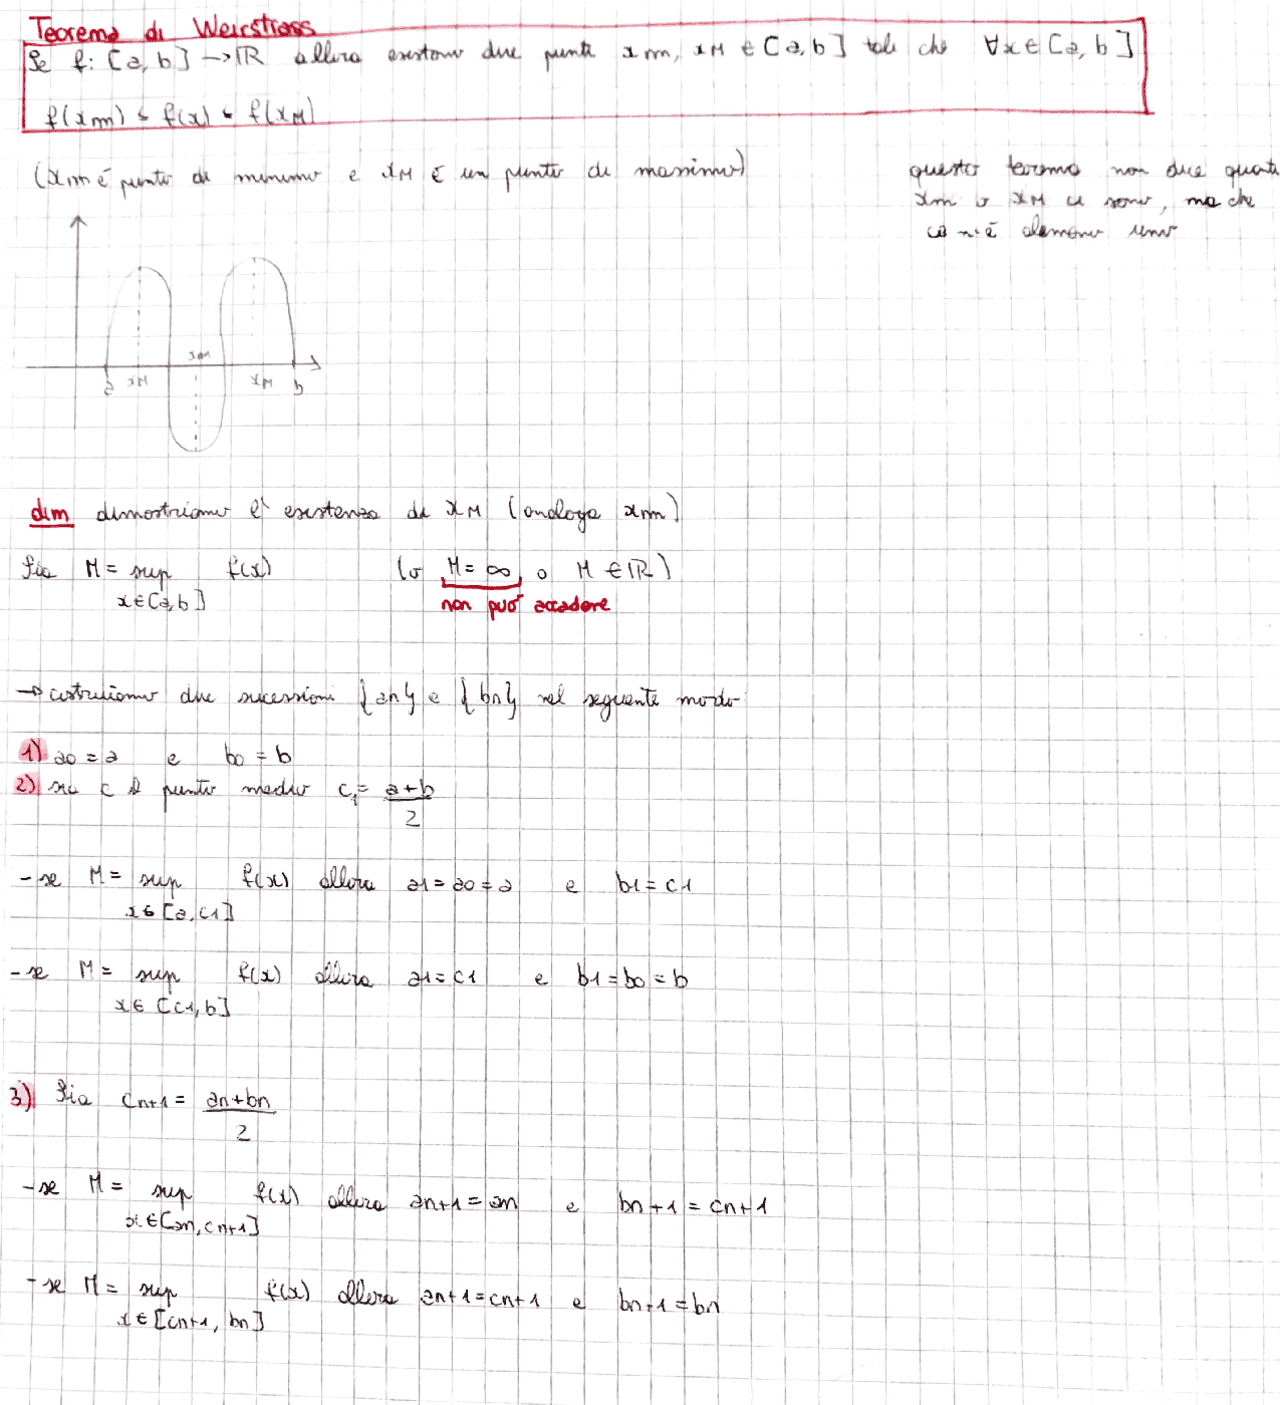 Teorema di Weirstrass
Se f: [a, b] → ℝ allora esistono due punti xm, xM ∈ [a, b] tali che ∀x ∈ [a, b]
f(xm) ≤ f(x) ≤ f(xM)
(xm è punto di minimo e xM è un punto di massimo)
questo teorema non dice quanti
xm o xM ci sono, ma che
ce n'è almeno uno
xm
a xM xM b
dim dimostriamo l'esistenza di xM (analoga xm)
Sia M = sup f(x) (o M = ∞ o M ∈ ℝ)
x ∈ [a, b] non può accadere
→ costruiamo due sucessioni {an} e {bn} nel seguente modo:
1) a0 = a e b0 = b
2) sia c il punto medio c1 = a+b
2
- se M = sup f(x) allora a1 = a0 = a e b1 = c1
x ∈ [a, c1]
- se M = sup f(x) allora a1 = c1 e b1 = b0 = b
x ∈ [c1, b]
3) Sia cn+1 = an+bn
2
- se M = sup f(x) allora an+1 = an e bn+1 = cn+1
x ∈ [an, cn+1]
- se M = sup f(x) allora an+1 = cn+1 e bn+1 = bn
x ∈ [cn+1, bn]